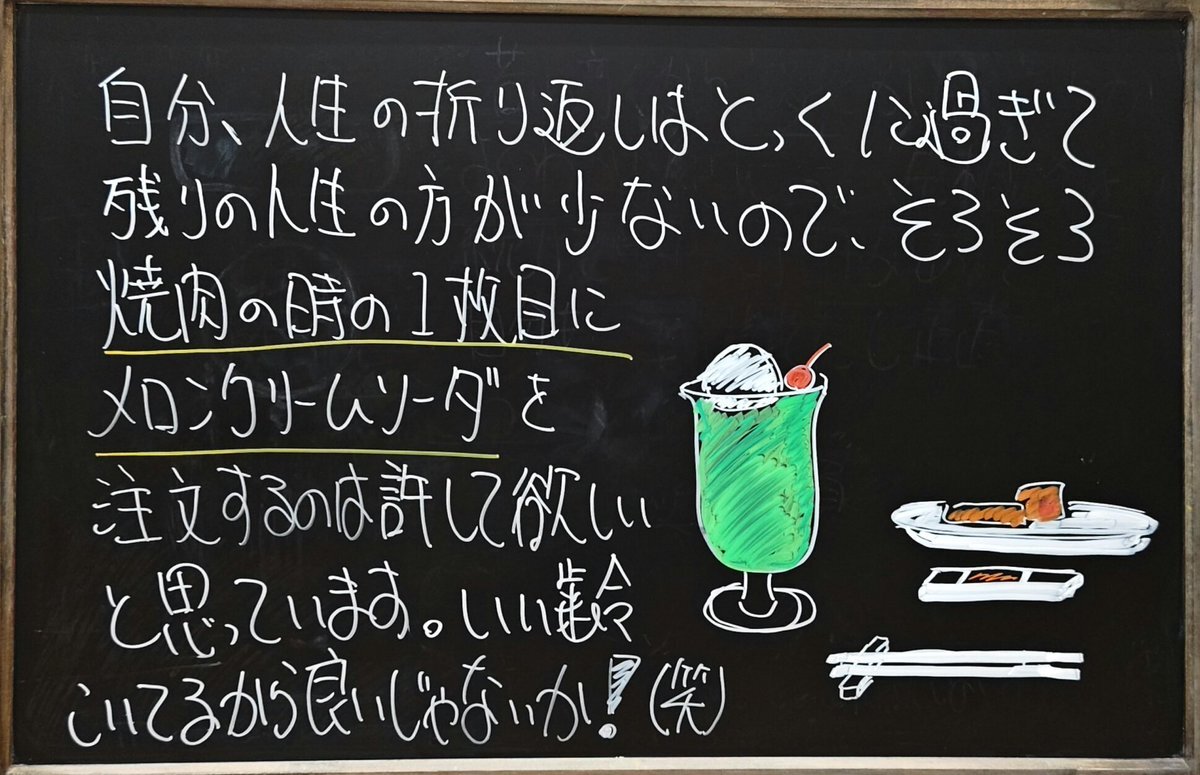 自分、人生の折り返しはとっくに過ぎて
残りの人生の方が少ないので、そろそろ
焼肉の時の1枚目に
メロンクリームソーダを
注文するのは許して欲しい
と思っています。いい齢
こいてるから良いじゃないか!(笑)